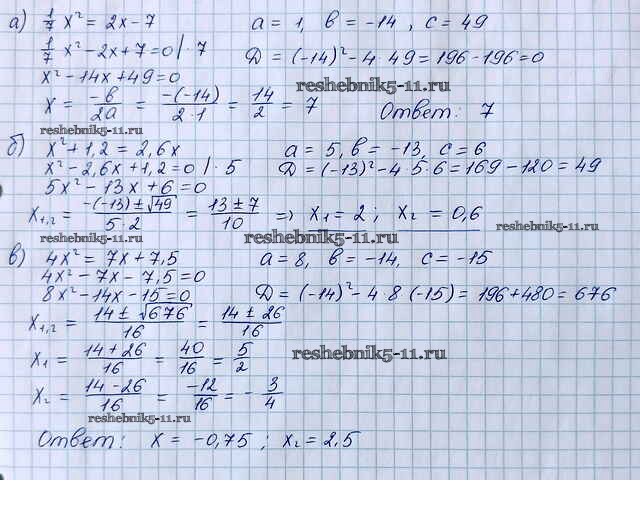 а) 1/7 x² = 2x - 7 a = 1, b = -14, c = 49
1/7 x² - 2x + 7 = 0 | · 7 D = (-14)² - 4 · 49 = 196 - 196 = 0
x² - 14x + 49 = 0
reshebnik5-11.ru
x = -b/2a = -(-14)/2·1 = 14/2 = 7 Ответ: 7
reshebnik5-11.ru
б) x² + 1,2 = 2,6x a = 5, b = -13, c = 6
x² - 2,6x + 1,2 = 0 | · 5 D = (-13)² - 4 · 5 · 6 = 169 - 120 = 49
5x² - 13x + 6 = 0
x₁,₂ = -(-13) ± √49/5·2 = 13 ± 7/10 => x₁ = 2; x₂ = 0,6
reshebnik5-11.ru reshebnik5-11.ru
в) 4x² = 7x + 7,5 a = 8, b = -14, c = -15
4x² - 7x - 7,5 = 0
8x² - 14x - 15 = 0 D = (-14)² - 4 · 8 · (-15) = 196 + 480 = 676
x₁,₂ = 14 ± √676/16 = 14 ± 26/16
x₁ = 14 + 26/16 = 40/16 = 5/2 reshebnik5-11.ru
x₂ = 14 - 26/16 = -12/16 = - 3/4
reshebnik5-11.ru
Ответ: x = -0,75; x₂ = 2,5